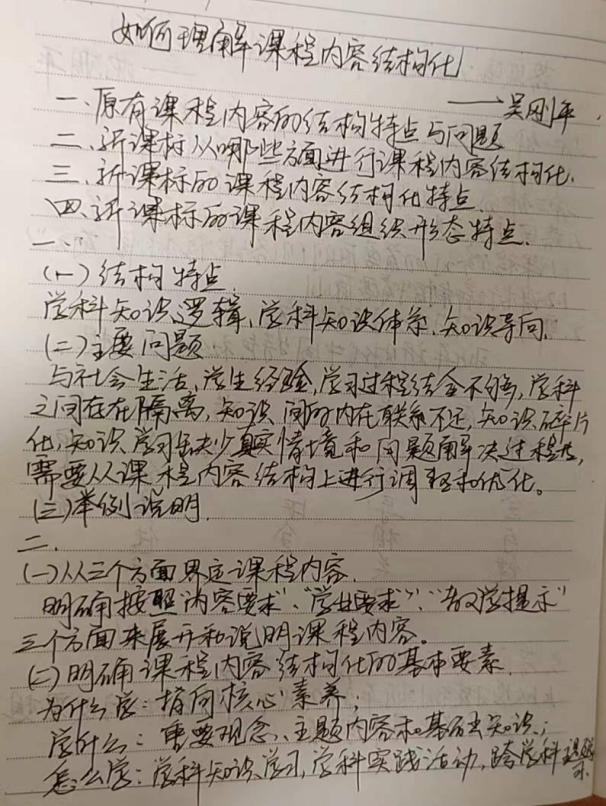 如何理解课程内容结构化
——吴刚平
一、原有课程内容的结构特点与问题
二、新课标从哪些方面进行课程内容结构化.
三、新课标的课程内容结构化特点
四、新课标的课程内容组织形态特点.
一、
(一)结构特点
学科知识逻辑,学科知识体系,知识导向.
(二)主要问题
与社会生活,学生经验,学习过程结合不够,学科
之间存在隔离,知识间的内在联系不足,知识碎片
化,知识学习缺少真实情境和问题解决过程,
需要从课程内容结构上进行调整和优化。
(三)举例说明.
二.
(一)从三个方面界定课程内容.
明确按照“内容要求”、“学业要求”、“教学提示”
三个方面来展开和说明课程内容。
(二)明确课程内容结构化的基本要素
为什么学:指向核心素养;
学什么:重要观念、主题内容和基础知识;
怎么学:学科知识学习,学科实践活动,跨学科